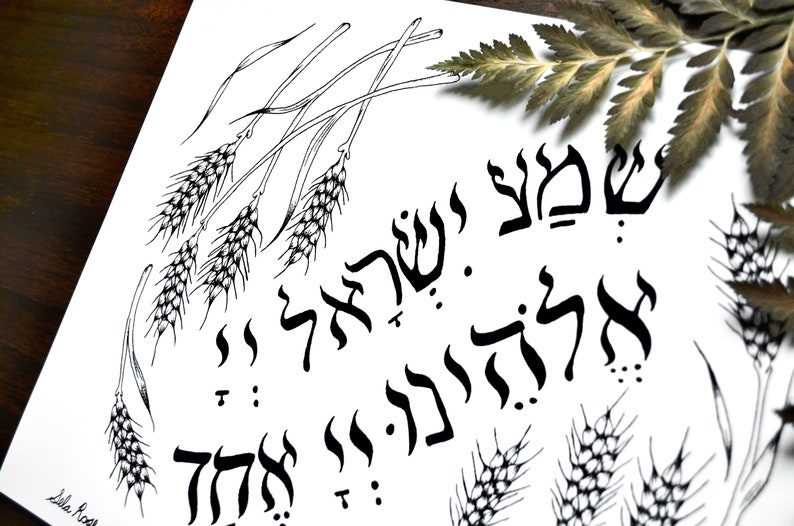 שְׁמַצ יִשְׂרָאל יְיָ
אֱלֹהֵינוּ יְיָ אֶחָד
Sela Rose